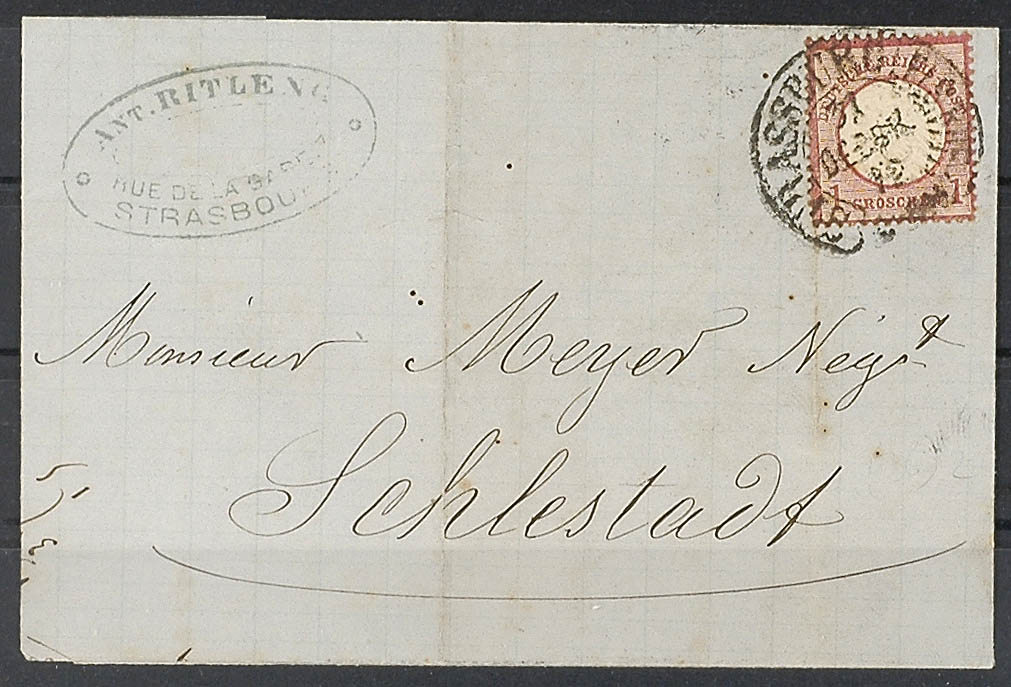 ANT. RITLENG
RUE DE LA GARE
STRASBOU
DEUTSCHE REICHS-POST
1 GROSCHEN 1
STRASSBURG
Monsieur Meyer Négt
Schlestadt